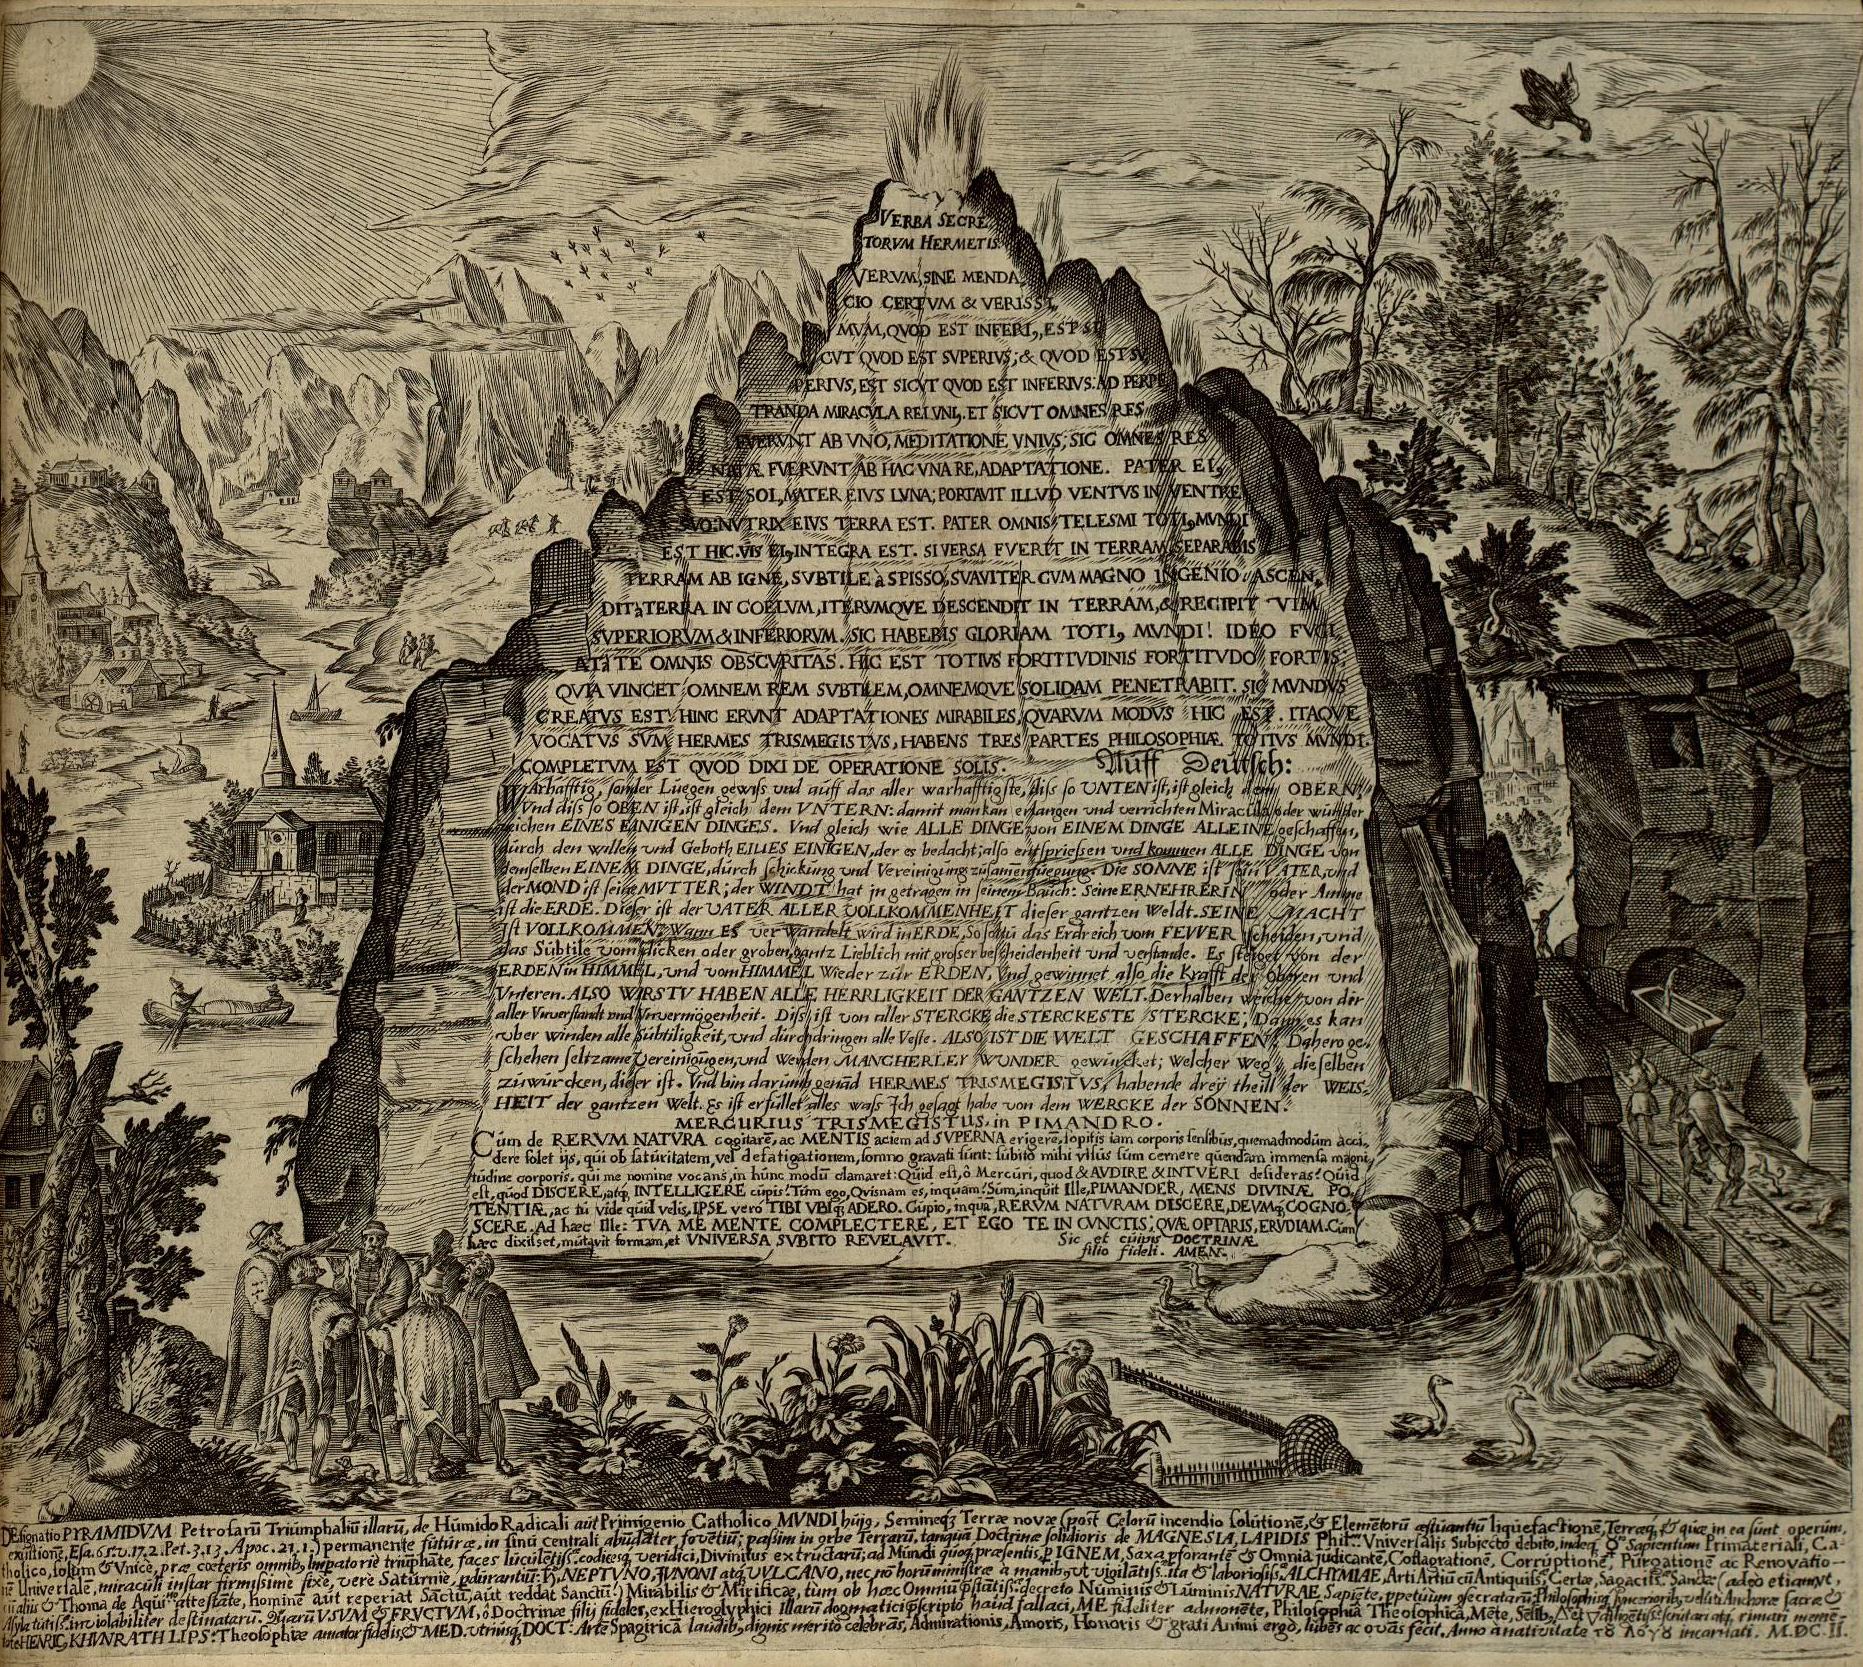 VERBA SECRE
TORVM HERMETIS.
VERVM, SINE MENDA
CIO CERTVM & VERISSI,
MVM, QVOD EST INFERI,, EST SI
CVT QVOD EST SVPERIVS; & QVOD EST SV
PERIVS, EST SICVT QVOD EST INFERIVS: AD PERPE
TRANDA MIRACVLA REI VNI,. ET SICVT OMNES RES
FVERVNT AB VNO, MEDITATIONE VNIVS; SIC OMNES RES
NATÆ FVERVNT AB HAC VNA RE, ADAPTATIONE. PATER EI,
EST SOL, MATER EIVS LVNA; PORTAVIT ILLVD VENTVS IN VENTRE
SVO: NVTRIX EIVS TERRA EST. PATER OMNIS TELESMI TOTI, MVNDI
EST HIC. VIS EI, INTEGRA EST. SI VERSA FVERIT IN TERRAM SEPARABIS
TERRAM AB IGNE, SVBTILE à SPISSO, SVAVITER CVM MAGNO INGENIO. ASCEN,
DIT à TERRA IN COELVM, ITERVMQVE DESCENDIT IN TERRAM, & RECIPIT VIM
SVPERIORVM & INFERIORVM. SIC HABEBIS GLORIAM TOTI, MVNDI! IDEO FVGI,
AT à TE OMNIS OBSCVRITAS. HIC EST TOTIVS FORTITVDINIS FORTITVDO FORTIS;
QVIA VINCET OMNEM REM SVBTILEM, OMNEMQVE SOLIDAM PENETRABIT. SIC MVNDVS
CREATVS EST. HINC ERVNT ADAPTATIONES MIRABILES, QVARVM MODVS HIC EST. ITAQVE
VOCATVS SVM HERMES TRISMEGISTVS, HABENS TRES PARTES PHILOSOPHIÆ TOTIVS MVNDI.
COMPLETVM EST QVOD DIXI DE OPERATIONE SOLIS. Auff Deutsch:
WArhafftig, sonder Luegen gewiss und auff das aller warhafftigste, diss so UNTEN ist, ist gleich dem OBERN,
Vnd diss so OBEN ist, ist gleich dem VNTERN: damit man kan erlangen und verrichten Miracula oder wunder
zeichen EINES EINIGEN DINGES. Vnd gleich wie ALLE DINGE von EINEM DINGE ALLEINE geschaffen,
durch den willen und Geboth EINES EINIGEN, der es bedacht; also entspriessen und kommen ALLE DINGE von
demselben EINEM DINGE, durch schickung und Vereinigung zusamenfuegung. Die SONNE ist sein VATER, und
der MOND ist seine MVTTER; der WINDT hat jn getragen in seinem Bauch: Seine ERNEHRERIN oder Amme
ist die ERDE. Dieser ist der VATER ALLER VOLLKOMMENHEIT dieser gantzen Weldt. SEINE MACHT
Ist VOLLKOMMEN; Wann ES verwandelt wird in ERDE, So soltu das Erdreich vom FEVVER scheiden, und
das Subtile vom dicken oder groben, gantz Lieblich mit grosser bescheidenheit und verstande. Es steiget von der
ERDEN in HIMMEL, und vom HIMMEL Wieder zur ERDEN, Und gewinnet also die Krafft der Oberen und
Vnteren. ALSO WIRSTV HABEN ALLE HERRLIGKEIT DER GANTZEN WELT. Derhalben weiche von dir
aller Vnverstandt und Vnvermögenheit. Diss ist von aller STERCKE die STERCKESTE STERCKE; Dann es kan
uber winden alle Subtiligkeit, und durchdringen alle Veste. ALSO IST DIE WELT GESCHAFFEN; Dahero ge,
schehen seltzame Vereinigungen, und Werden MANCHERLEY WUNDER gewürcket; welcher Weg, dieselben
zuwürcken, dieser ist. Vnd bin darumb genād HERMES TRISMEGISTVS, habende drey theill der WEIS,
HEIT der gantzen Welt. Es ist erfullet alles wass Ich gesagt habe von dem WERCKE der SONNEN.
MERCURIUS TRISMEGISTUS. in PIMANDRO.
Cum de RERVM NATVRA cogitarē, ac MENTIS aciem ad SVPERNA erigerē, sopitis iam corporis sensibus, quemadmodum acci,
dere solet ijs, qui ob saturitatem, vel defatigationem, somno gravati sunt: subito mihi visus sum cernere quendam immensa magni,
tudine corporis, qui me nomine vocans, in hunc modū clamaret: Quid est, ô Mercuri, quod & AVDIRE & INTVERI desideras? Quid
est, quod DISCERE, atq, INTELLIGERE cupis? Tum ego, Quisnam es, inquam? Sum, inquit Ille, PIMANDER, MENS DIVINÆ PO,
TENTIÆ, ac tu vide quid velis, IPSE vero TIBI VBIq; ADERO. Cupio, inquā, RERVM NATVRAM DISCERE, DEVMq; COGNO,
SCERE. Ad hæc Ille: TVA ME MENTE COMPLECTERE, ET EGO TE IN CVNCTIS, QVÆ OPTARIS, ERVDIAM. Cum
hæc dixisset, mutavit formam, et UNIVERSA SUBITO REVELAVIT. Sic et cuivis DOCTRINÆ
filio fideli. AMEN.
DEsignatio PYRAMIDVM Petrosarū Triumphaliū illarū, de Húmido Radicali aut Primigenio Catholico MVNDI hujq, Semineq; Terræ novæ (post Celorū incendio solutionē, & Elementorū æstuantiū liquefactionē, Terræq, & quæ in ea sunt operum,
exustionē, Esa. 65. v. 17. 2. Pet. 3. 13. Apoc. 21. 1.) permanente futuræ, in sinū centrali abūdāter fovētiū; passim in orbe Terrarū, tanquā Doctrinæ solidioris de MAGNESIA, LAPIDIS Phil. Vniversalis Subjecto debito, indeq, Sapientum Primateriali, Ca-
tholico, solum & Vnice, præ cœteris omnib, Imperatoriè triumphāte, faces luculētiss. codicesq, veridici, Divinitus extructarū; ad Mundi quoq, præsentis, p IGNEM, Saxa pforante & Omnia judicantē, Coflagrationē, Corruptionē, Purgationē ac Renovatio-
nē Universalē, miraculi instar firmissime fixè, verè Saturniè, pdurantiū: NEPTVNO, IVNONI atq, VVLCANO, nec nō horū ministræ a manib, ut vigilātiss. ita & laboriosiss. ALCHYMIAE, Arti Artiū cū Antiquiss. Certæ, Sagaciss. Sanctæ (adeo etiam ut,
aliis & Thoma de Aquī attestate, homine aut reperiat Sāctū, aut reddat Sanctū.) Mirabilis & Mirificæ, tum ob hæc Omniū præstātiss. decreto Numinis & Luminis NATVRÆ Sapiētē, ppetuum csecratarū; Philosophisq, sincerioribq, veluti Anchoræ sacræ &
Asyla tutiss. inviolabiliter destinatarū. Quarū VSVM & FRVCTVM, ô Doctrinæ filij fideles, ex Hieroglyphici Illarū dogmatici pscripto haud fallaci, ME fideliter admonēte, Philosophiā Theosophicā, Mēte, diligētiss. scrutari atq, rimari memē-
tote. HENRIC, KHVNRATH LIPS: Theosophiæ amator fidelis, & MED. utriusq, DOCT: Arte Spagiricā laudib, dignis meritò celebrās, Admirationis, Amoris, Honoris & grati Animi ergo, lubēs ac ovās fecit. Anno a nativitate τȣ Λόγȣ incarnati. M.DC.II.